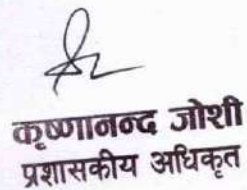 कृष्णानन्द जोशी
प्रशासकीय अधिकृत